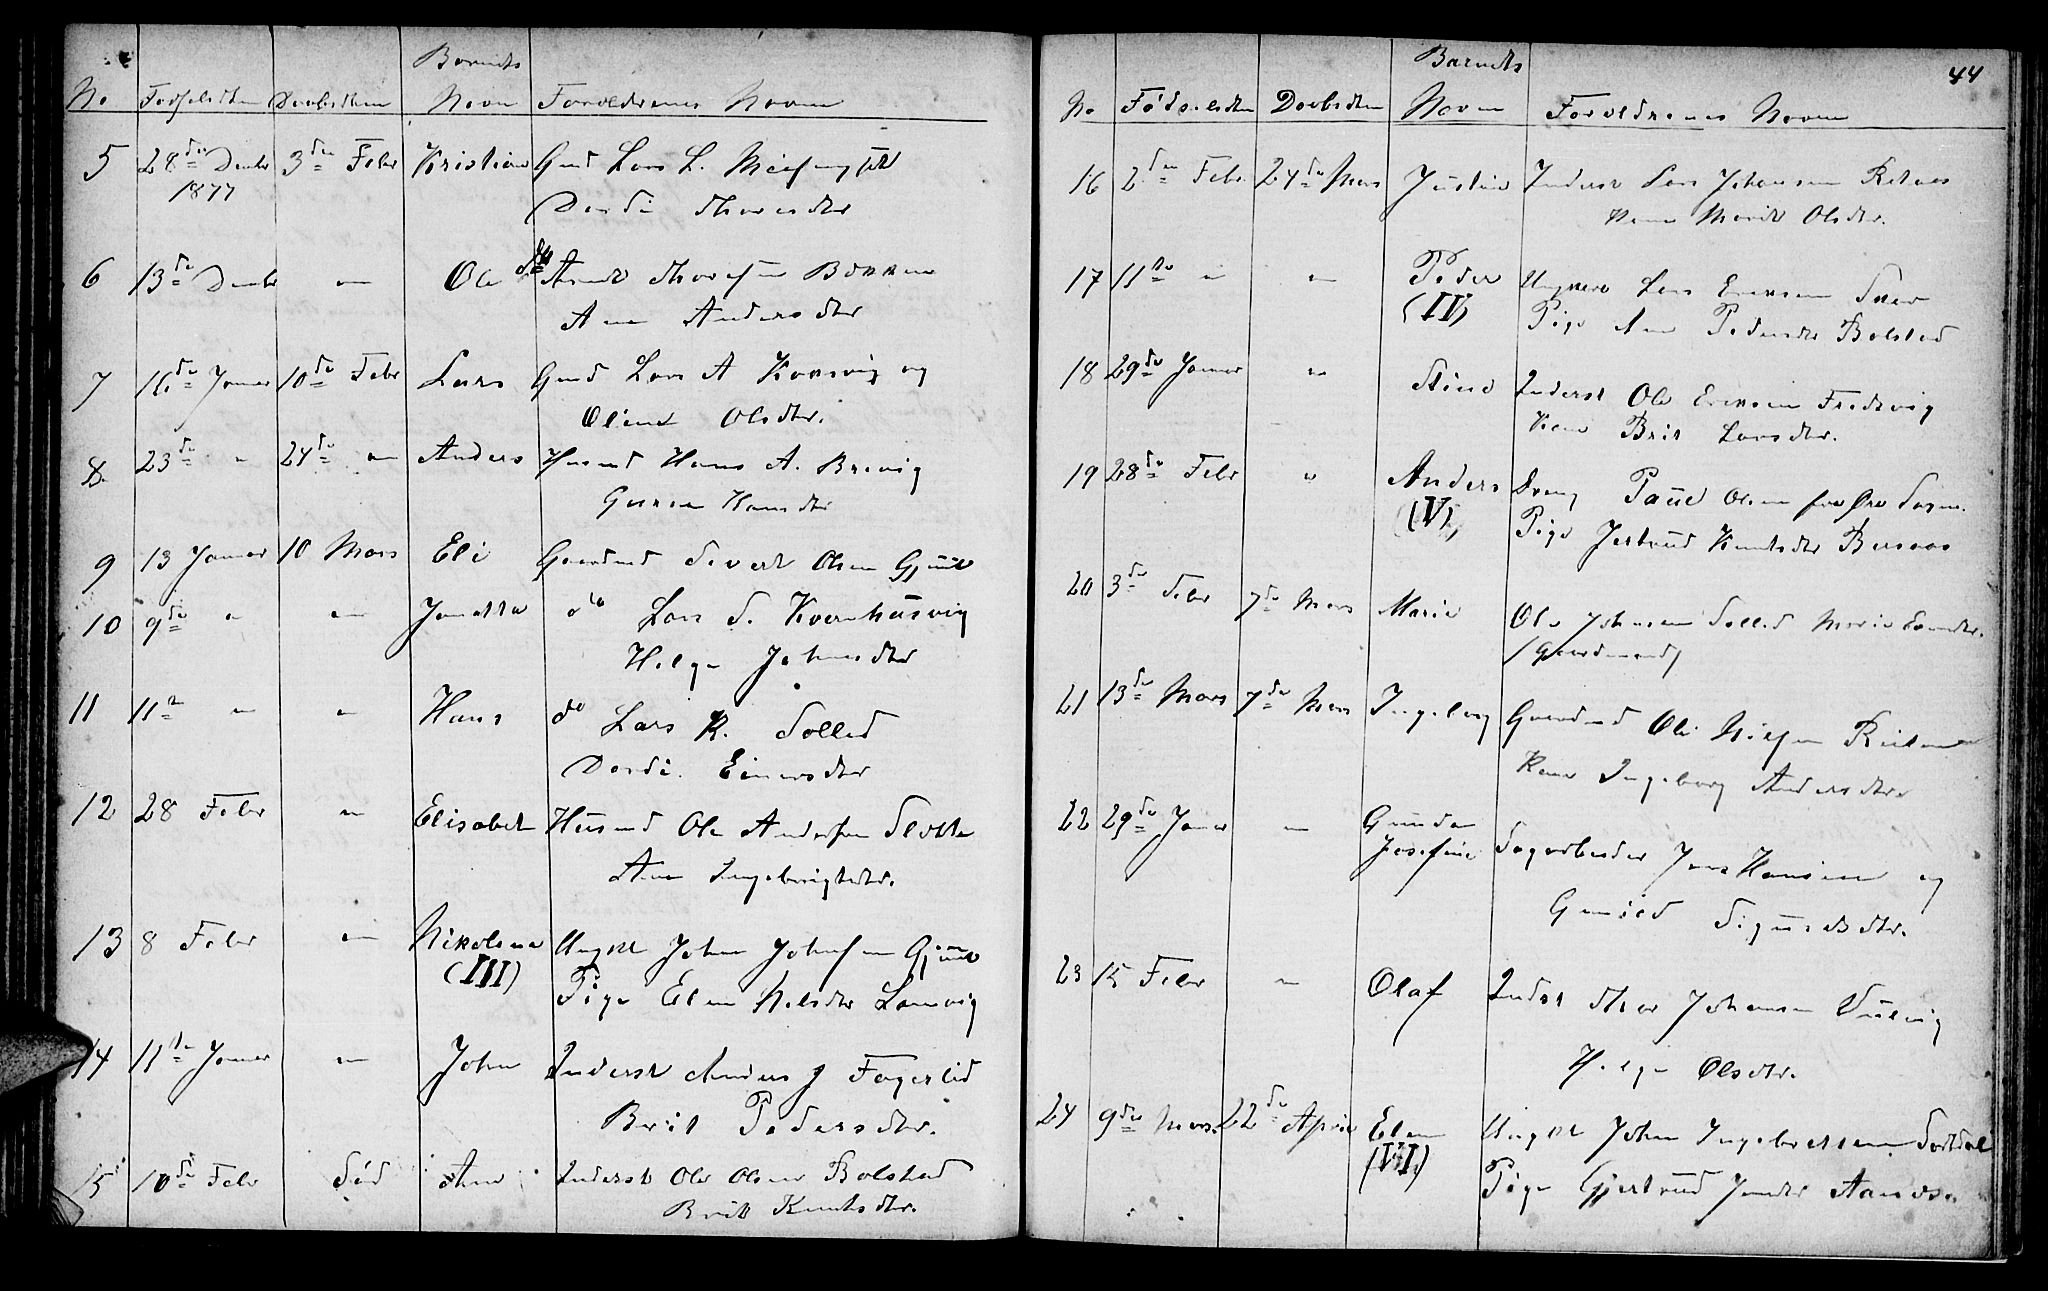 Barnets
No Fødselsdten Daabsdten Navn Foreldrenes Navne
5 28de Decbr 3de Febr Kristian Gmd Lars L.
1877 Dordi Thoresdtr
6 13de Decbr " Ole do Arnt Thoresen Bakken
Ane Andersdtr
7 16de Januar 10de Febr Lars Gmd Lars A Korsvig og
Oline Olsdtr.
8. 23de " 24de " Anders Husmd Hans A. Brevig
Guren Hansdtr
9 13 Januar 10 Mars Eli Gaardmd Sivert Olsen Gjüul
10 9de " " Jonetta do Lars S. Kvernhusvig
Helge Johnsdtr
11 11te " " Hans do Lars R. Solled
Dordi Einersdtr
12 28 Febr " Elisabet Husmd Ole Andersen Slotte
Ane Ingebrigtsdtr.
13 8 Febr " Nikoline Ungkl John Johnsen Gjüul
(III) Pige Elen Nelsdtr Lanvig
14 11te Januar " John Inderst Anders J Fagerlid
Brit Pedersdtr.
15 10de Febr Død Ane Inderst Ole Olsen Bolstad
Brit Knutsdtr.
44
Barnets
No Fødselsdten Daabsdten Navn Foreldrenes Navne
16 2den Febr. 24de Mars Justine Inderst Lars Johansen
Kone Marit Olsdtr.
17 11te " " Peder Ungkarl Lars Eriksen
(IV) Pige Ane Pedersdtr Bolstad
18 29de Januar " Stine Inderst Ole Eriksen Fredsvig
Kone Brit Larsdter.
19 28de Febr " Anders Dreng Paul Olsen fra Øre Sogn.
(V) Pige Jertrud Knutsdtr
20 3de Febr 7de Mars Marie Ole Johnsen Solled Marie
/Gaardmand/
21 13de Mars 7de Mars Ingeborg Gaardmd Ole Nilsen Reiten
Kone Ingeborg Andersdtr.
22 29de Januar " Gunda
Josefine Sagarbeider Jens Hansen og
Gunild Sigurdsdtr.
23 15 Febr " Olaf Inderst Thor Johansen Vulvig
Helge Olsdtr.
24 9de Mars 22de April Elen Ungkl John Ingebretsen
(VI) Pige Gjertrud Jonsdtr